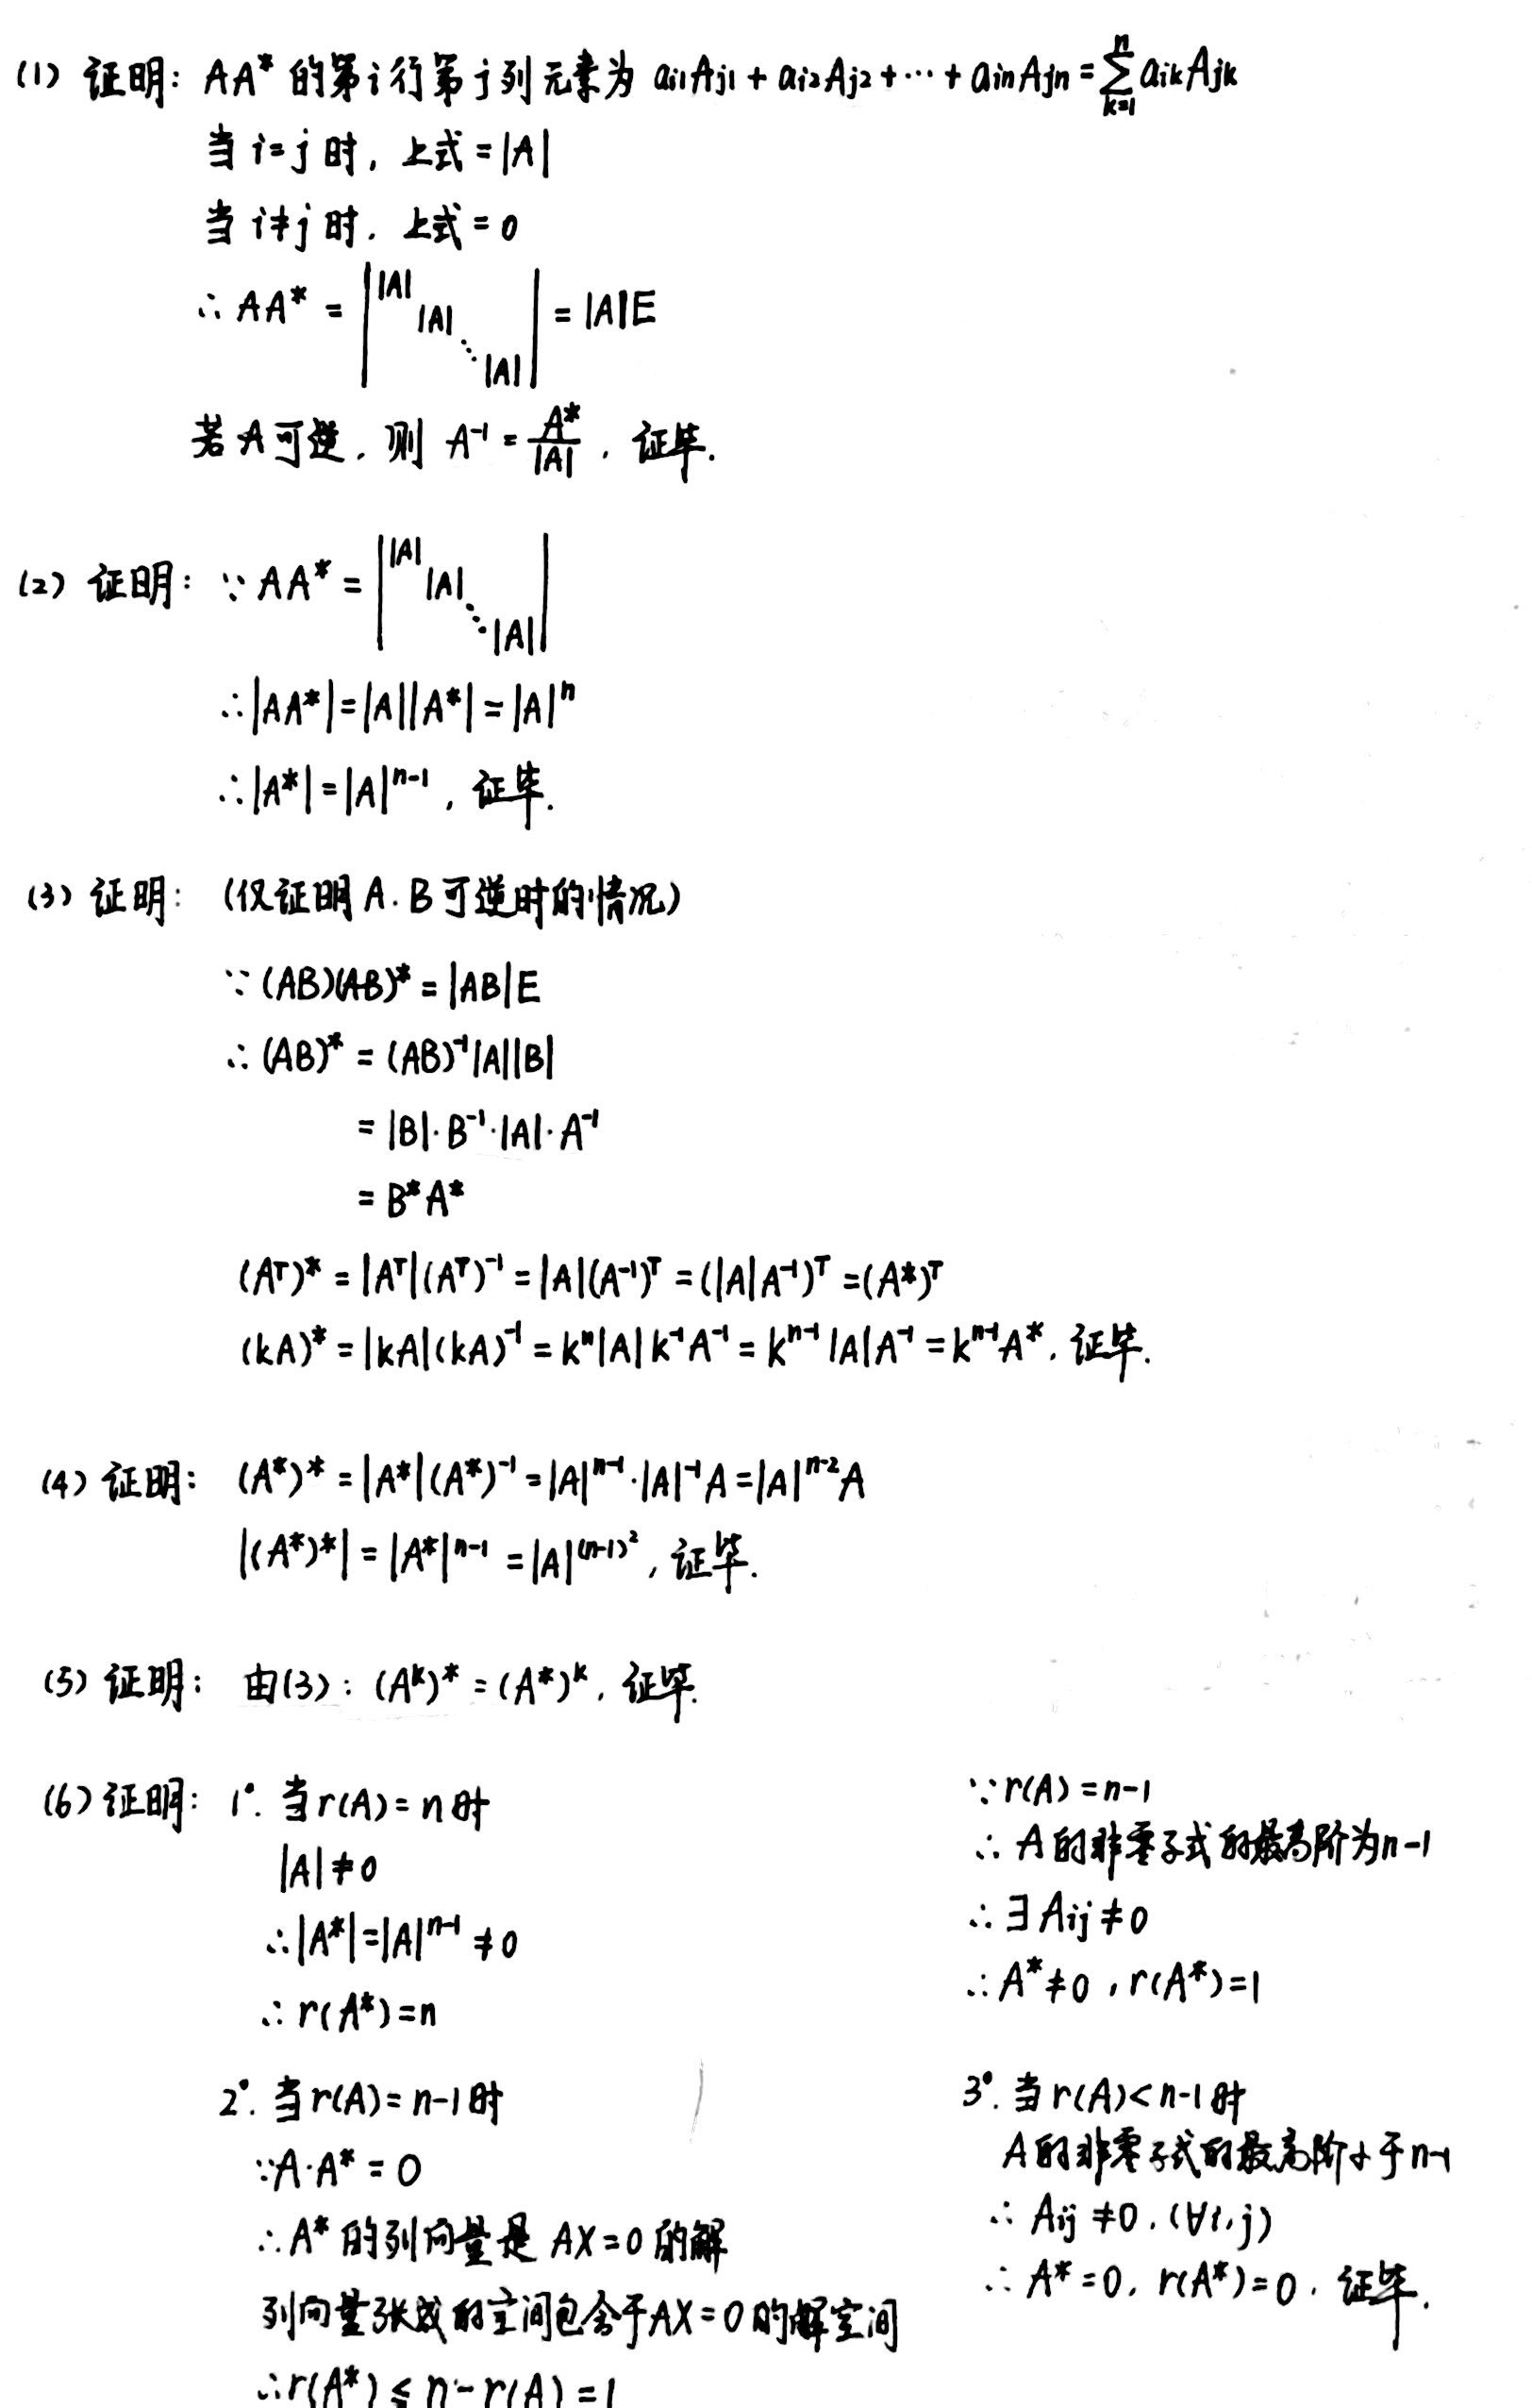 (1) 证明: AA* 的第i行第j列元素为 ai1Aj1 + ai2Aj2 + ⋯ + ainAjn = ∑_{k=1}^{n} aikAjk
当 i=j 时, 上式 = |A|
当 i≠j 时. 上式 = 0
∴ AA* = | |A| |A| ⋱ |A| | = |A|E
若A可逆, 则 A⁻¹ = A*/|A| , 证毕.
(2) 证明: ∵ AA* = | |A| |A| ⋱ |A| |
∴ |AA*| = |A||A*| = |A|ⁿ
∴ |A*| = |A|ⁿ⁻¹ , 证毕.
(3) 证明: (仅证明 A.B可逆时的情况)
∵ (AB)(AB)* = |AB|E
∴ (AB)* = (AB)⁻¹|A||B|
= |B|·B⁻¹·|A|·A⁻¹
= B*A*
(Aᵀ)* = |Aᵀ|(Aᵀ)⁻¹ = |A|(A⁻¹)ᵀ = (|A|A⁻¹)ᵀ = (A*)ᵀ
(kA)* = |kA|(kA)⁻¹ = kⁿ|A|k⁻¹A⁻¹ = kⁿ⁻¹|A|A⁻¹ = kⁿ⁻¹A*. 证毕.
(4) 证明: (A*)* = |A*|(A*)⁻¹ = |A|ⁿ⁻¹·|A|⁻¹A = |A|ⁿ⁻²A
|(A*)*| = |A*|ⁿ⁻¹ = |A|^{(n-1)²} , 证毕.
(5) 证明: 由(3): (Aᵏ)* = (A*)ᵏ, 证毕.
(6) 证明: 1°. 当 r(A) = n 时
|A| ≠ 0
∴ |A*| = |A|ⁿ⁻¹ ≠ 0
∴ r(A*) = n
2°. 当 r(A) = n-1 时
∵ A·A* = 0
∴ A* 的列向量是 AX=0 的解
列向量张成的空间包含于AX=0的解空间
∴ r(A*) ≤ n - r(A) = 1
∵ r(A) = n-1
∴ A的非零子式的最高阶为n-1
∴ ∃ Aij ≠ 0
∴ A* ≠ 0 , r(A*) = 1
3°. 当 r(A) < n-1 时
A的非零子式的最高阶小于n-1
∴ Aij ≠ 0. (∀i,j)
∴ A* = 0. r(A*) = 0. 证毕.